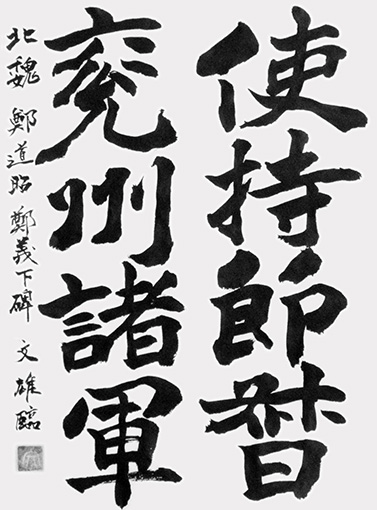 使持節督
兗州諸軍
北魏 鄭道昭 鄭羲下碑 文雄臨